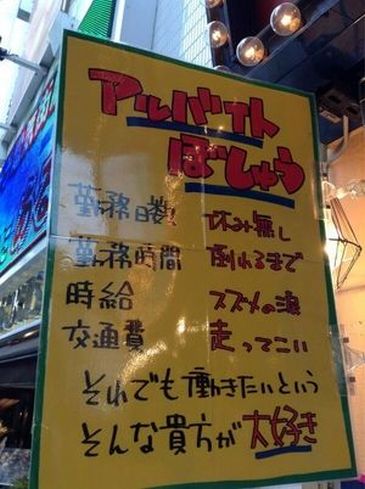 アルバイト
ぼしゅう
勤務日数 休み無し
勤務時間 倒れるまで
時給 スズメの涙
交通費 走ってこい
それでも働きたいという
そんな貴方が大好き